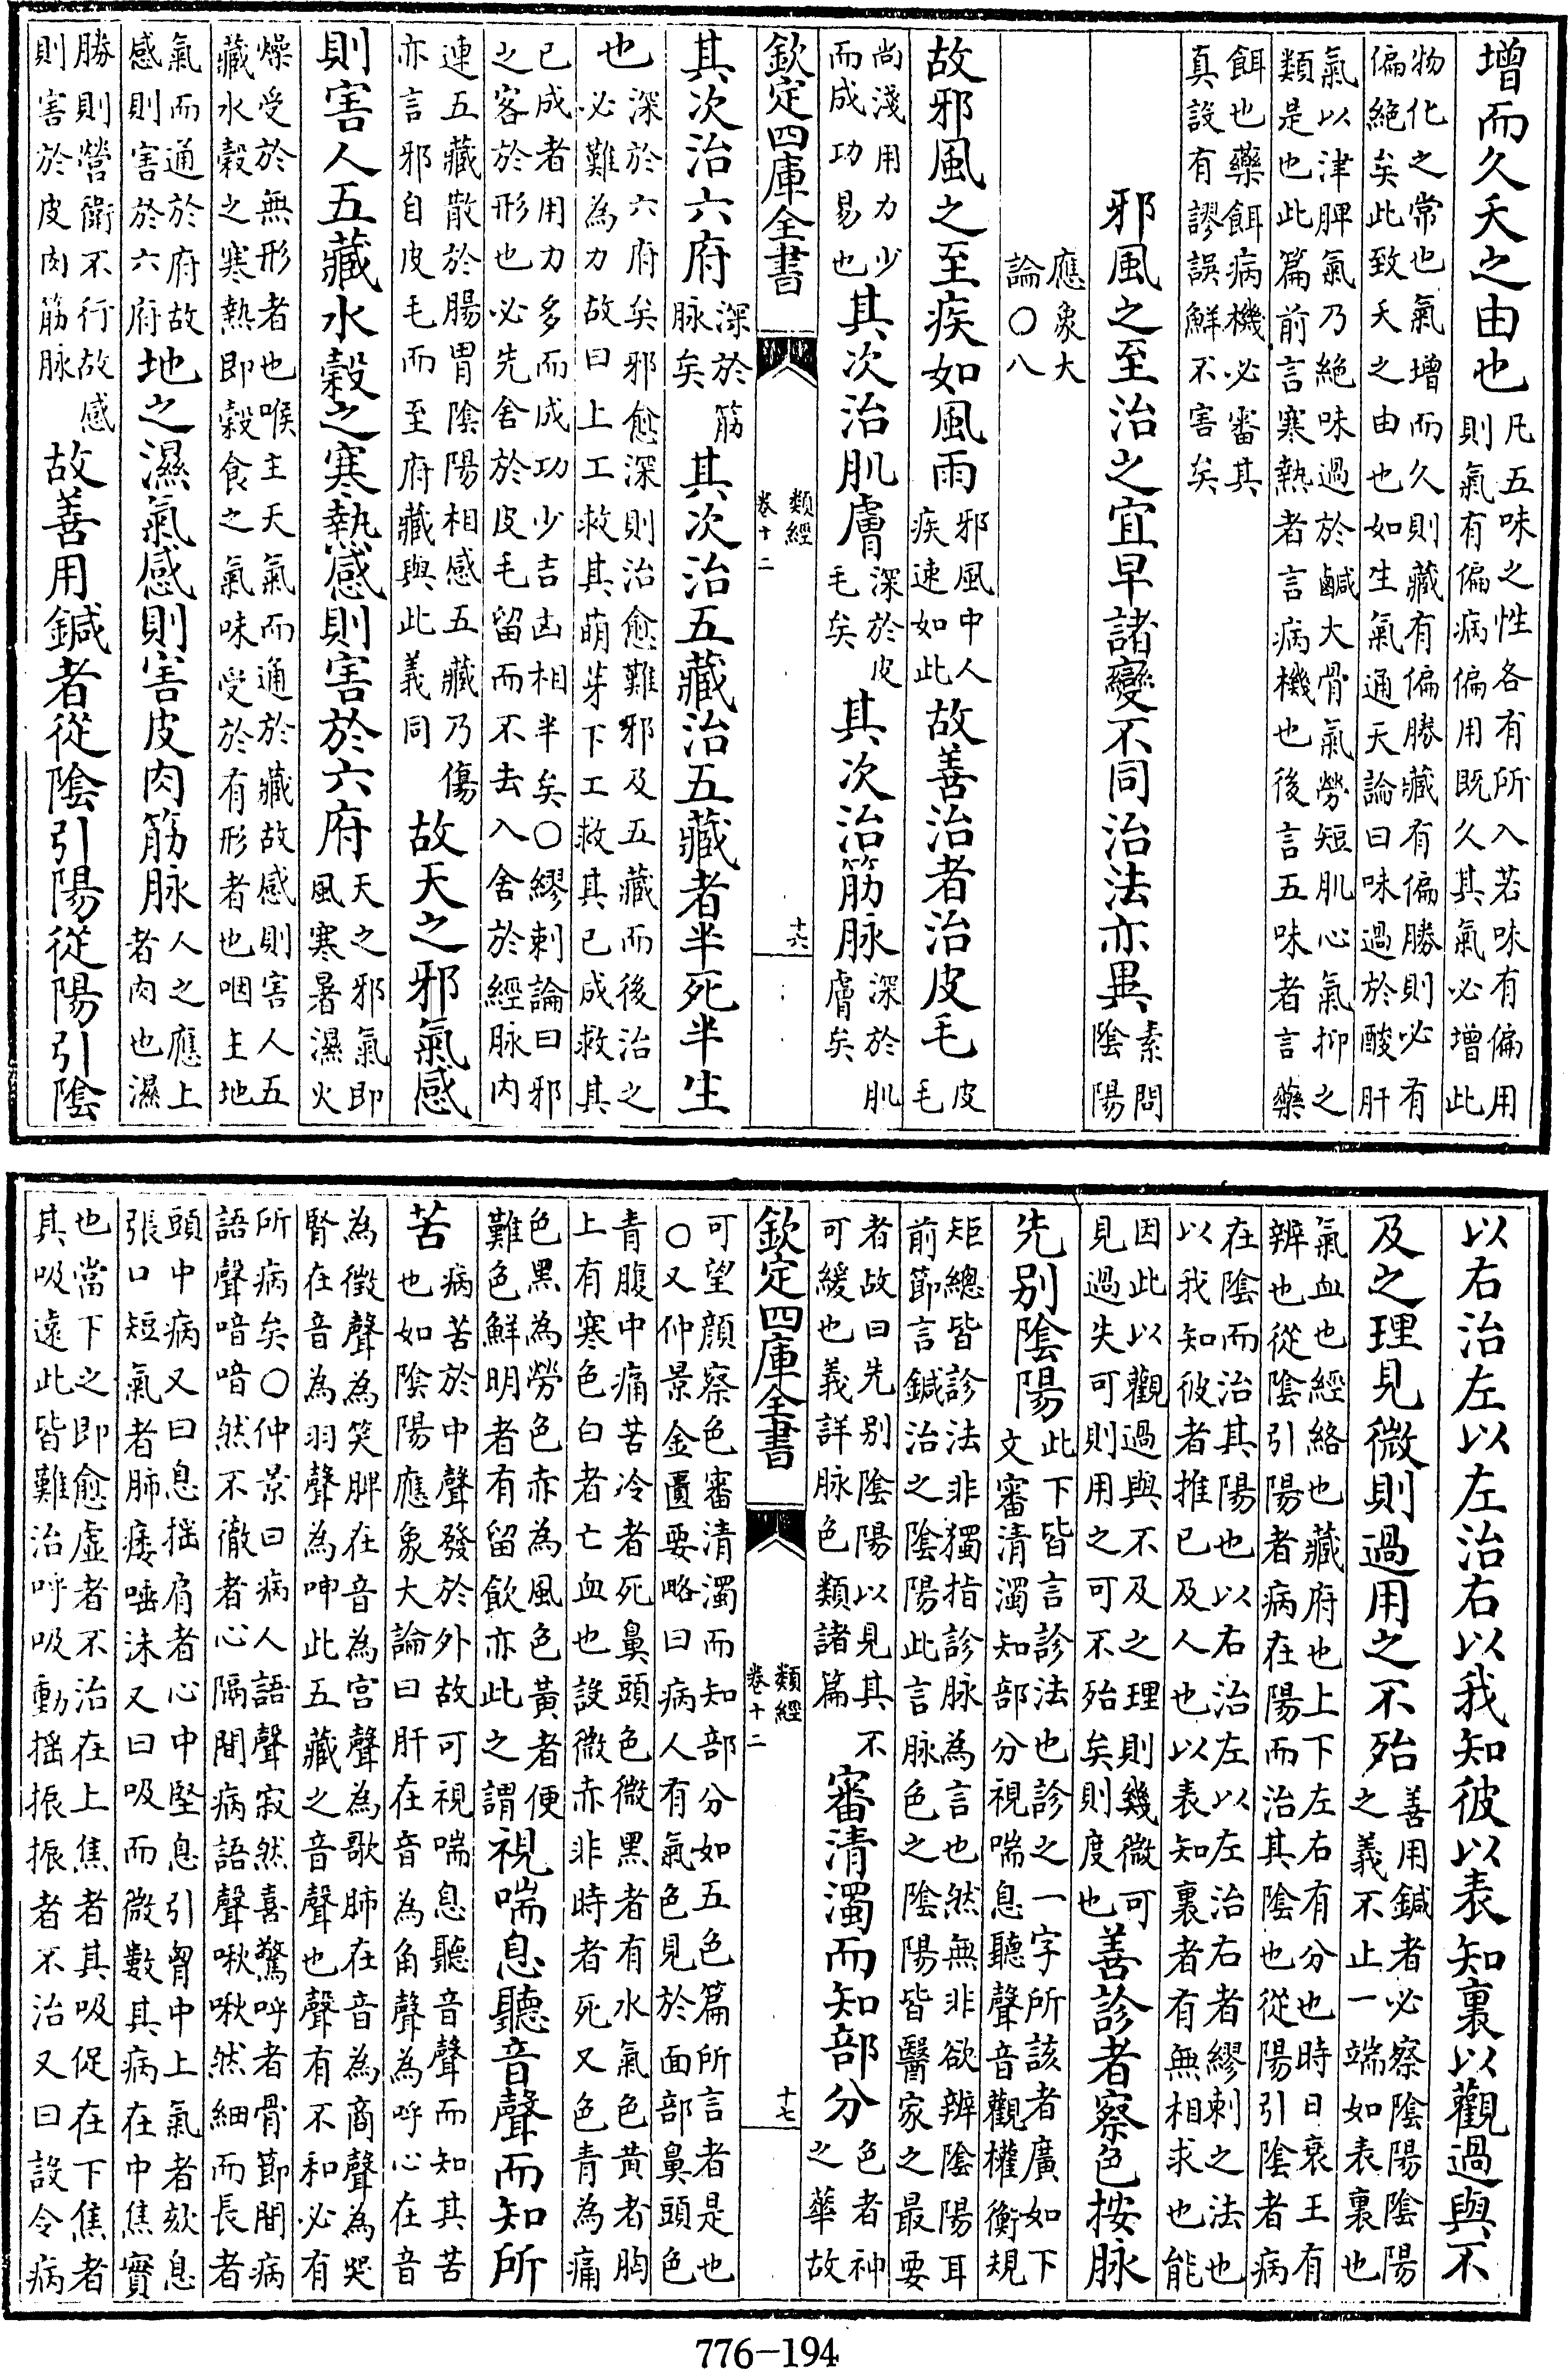 增而久夭之由也凡五味之性各有所入若味有偏用則氣有偏病偏用既久其氣必增此
物化之常也氣增而久則藏有偏勝藏有偏勝則必有偏絶矣此致夭之由也如生氣通天論曰味過於酸肝
氣以津脾氣乃絶味過於鹹大骨氣勞短肌心氣抑之類是也此篇前言寒熱者言病機也後言五味者言藥
餌也藥餌病機必審其真設有謬誤鮮不害矣
邪風之至治之宜早諸變不同治法亦異素問陰陽
應象大論○八
故邪風之至疾如風雨邪風中人疾速如此故善治者治皮毛皮毛
尚淺用力少而成功易也其次治肌膚深於皮毛矣其次治筋脉深於肌膚矣
欽定四庫全書
類經
卷十二
十六
其次治六府深於筋脉矣其次治五藏治五藏者半死半生
也深於六府矣邪愈深則治愈難邪及五藏而後治之必難為力故曰上工救其萌芽下工救其已成救其
已成者用力多而成功少吉凶相半矣○繆刺論曰邪之客於形也必先舍於皮毛留而不去入舍於經脉内
連五藏散於腸胃陰陽相感五藏乃傷亦言邪自皮毛而至府藏與此義同故天之邪氣感
則害人五藏水穀之寒熱感則害於六府天之邪氣即風寒暑濕火
燥受於無形者也喉主天氣而通於藏故感則害人五藏水穀之寒熱即穀食之氣味受於有形者也咽主地
氣而通於府故感則害於六府地之濕氣感則害皮肉筋脉人之應上者肉也濕
勝則營衛不行故感則害於皮肉筋脉故善用鍼者從陰引陽從陽引陰
以右治左以左治右以我知彼以表知裏以觀過與不
及之理見微則過用之不殆善用鍼者必察陰陽陰陽之義不止一端如表裏也
氣血也經絡也藏府也上下左右有分也時日衰王有辨也從陰引陽者病在陽而治其陰也從陽引陰者病
在陰而治其陽也以右治左以左治右者繆刺之法也以我知彼者推已及人也以表知裏者有無相求也能
因此以觀過與不及之理則幾微可見過失可則用之可不殆矣則度也善診者察色按脉
先别陰陽此下皆言診法也診之一字所該者廣如下文審清濁知部分視喘息聽聲音觀權衡規
矩總皆診法非獨指診脉為言也然無非欲辨陰陽耳前節言鍼治之陰陽此言脉色之陰陽皆醫家之最要
者故曰先别陰陽以見其不可緩也義詳脉色類諸篇審清濁而知部分色者神之華故
欽定四庫全書
類經
卷十二
十七
可望顔察色審清濁而知部分如五色篇所言者是也○又仲景金匱要略曰病人有氣色見於面部鼻頭色
青腹中痛苦冷者死鼻頭色微黑者有水氣色黄者胸上有寒色白者亡血也設微赤非時者死又色青為痛
色黑為勞色赤為風色黄者便難色鮮明者有留飲亦此之謂視喘息聽音聲而知所
苦病苦於中聲發於外故可視喘息聽音聲而知其苦也如陰陽應象大論曰肝在音為角聲為呼心在音
為徵聲為笑脾在音為宫聲為歌肺在音為商聲為哭腎在音為羽聲為呻此五藏之音聲也聲有不和必有
所病矣○仲景曰病人語聲寂然喜驚呼者骨節間病語聲喑喑然不徹者心隔間病語聲啾啾然細而長者
頭中病又曰息摇肩者心中堅息引胷中上氣者欬息張口短氣者肺痿唾沫又曰吸而微數其病在中焦實
也當下之即愈虚者不治在上焦者其吸促在下焦者其吸遠此皆難治呼吸動摇振振者不治又曰設令病
776-194